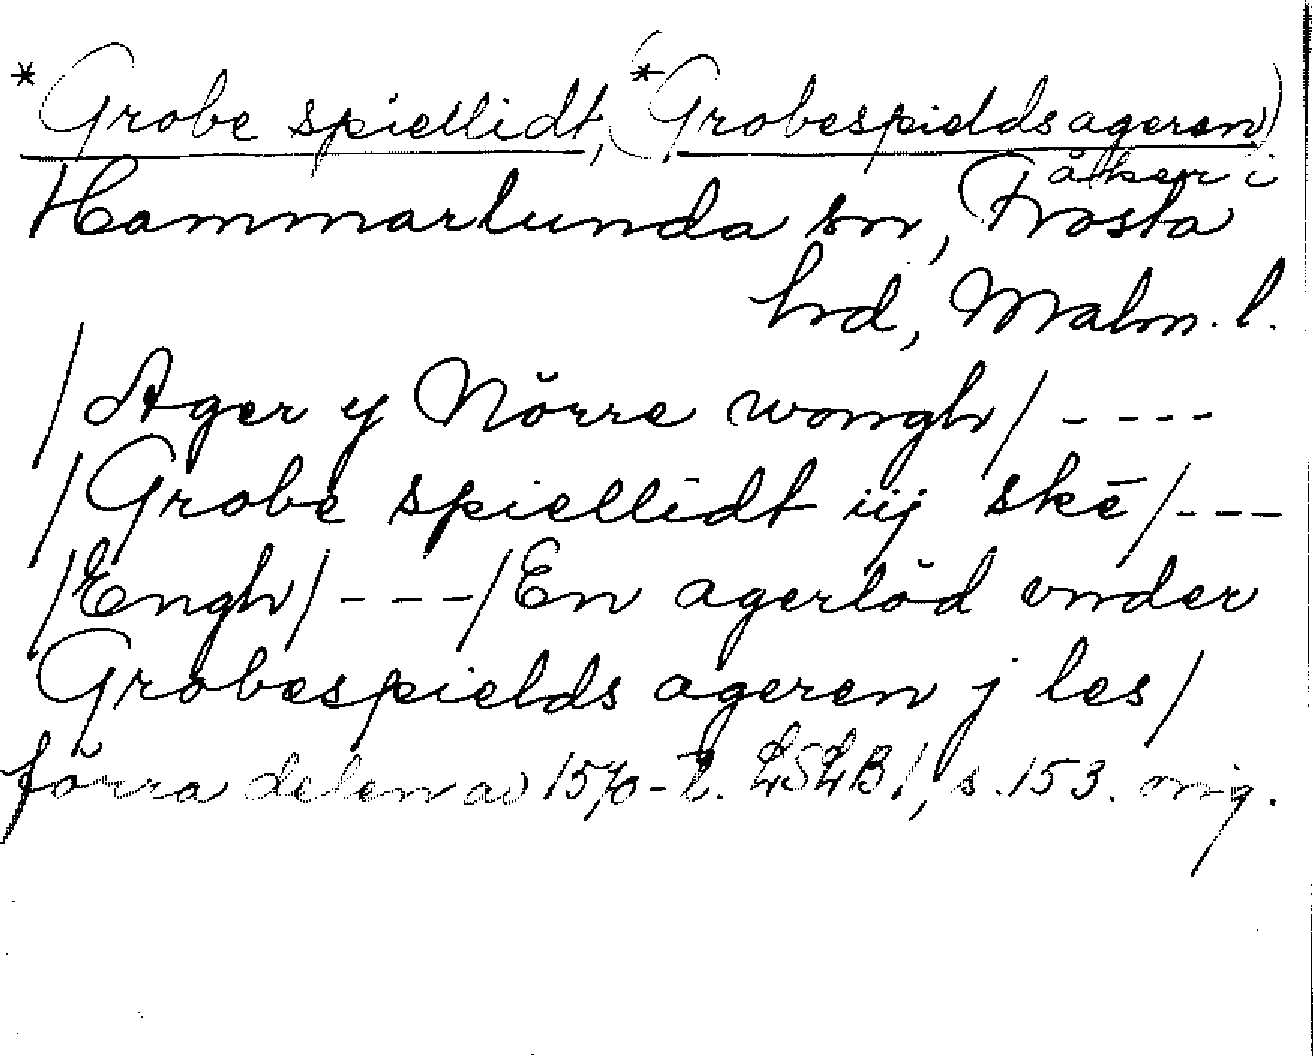 *Grobe spiellidt, (*Grobespieldsageren)
åker i
Hammarlunda sn, Frosta
hd, Malm. l.
/Ager y Nŏrre wongh/ ----
/Grobe spiellidt iij skē/---
/Engh/---/En agerlŏd vnder
Grobespields ageren j les/
förra delen av 1570-t. LSLB1, s.153. orig.